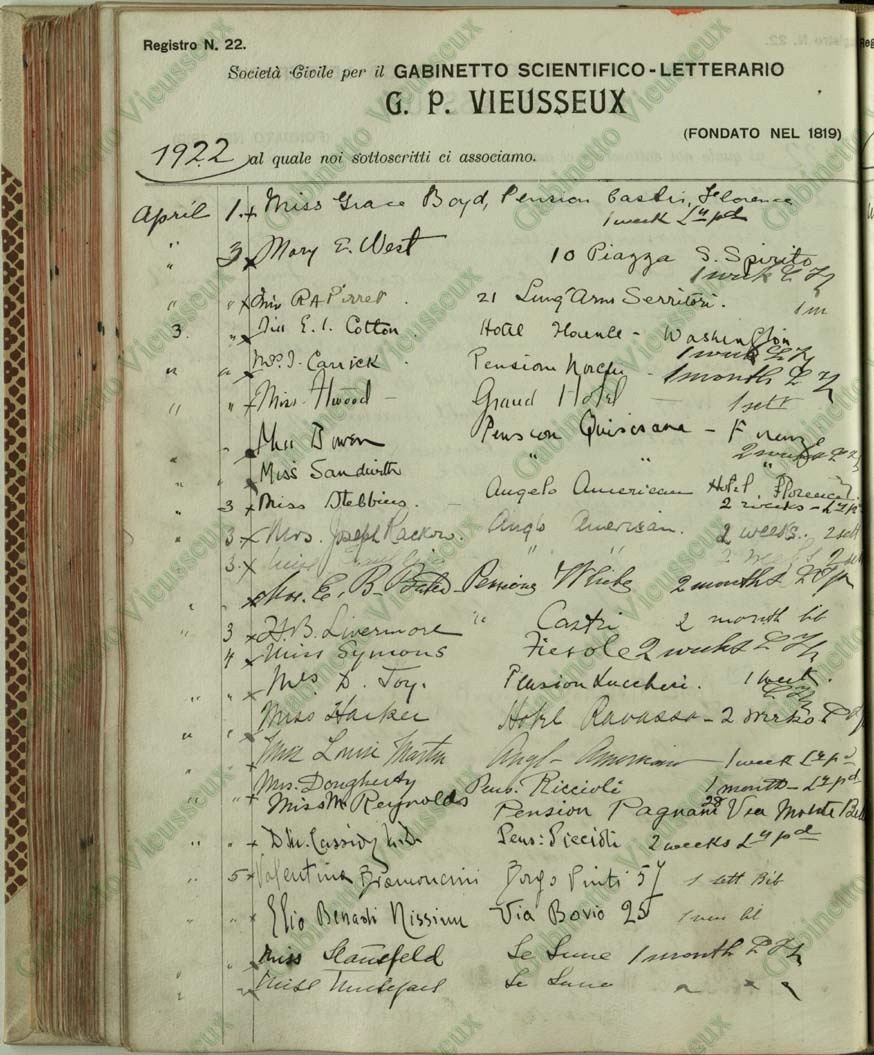 Registro N. 22.
Società Civile per il GABINETTO SCIENTIFICO-LETTERARIO
G. P. VIEUSSEUX
(FONDATO NEL 1819)
1922 al quale noi sottoscritti ci associamo.
April 1. x Miss Grace Boyd, Pension Castri, Florence
1 week Ly pd
" 3 x Mary E. West 10 Piazza S. Spirito
1 week
" " x Miss R A Pirret . 21 Lung'Arno Serristori. 1 m
3. " x Miss E. I. Cotton . Hotel Florence - Washington
1 week
" " x Mrs J. Carrick . Pensione
1 month
" " x Miss Atwood - Grand Hotel 1 sett
" x Miss Bowen Pension Quisisana - Firenze
2 weeks
" " x Miss Sandwith " " "
" 3 x Miss Stebbins. - Anglo American Hotel, Florence.
2 weeks - Ly pd
" 3 x Mrs. Joseph Packow. Anglo American. 2 weeks. 2 sett
3. x Miss " " 2 weeks 2 sett
" " x Mrs. E. B. Pensione White 2 months
" 3 x H. B. Livermore " Castri 2 month bib
4 x Miss Symons Fiesole 2 weeks
" " x Mrs D. Joy. Pension Luccheri. 1 week.
" " x Miss Harker Hotel Ravassa - 2 weeks
" x Miss Louise Martin Anglo-Americano - 1 week Ly pd
Mrs. Dougherty Pens. Riccioli 1 month - Ly pd
" " x Miss M. Reynolds Pension Pagnani 28 Via Monte
" " x D. W. Cassidy M.D. Pens: Piccioli 2 weeks Ly pd
" 5 x Valentina Bramoncini Borgo Pinti 57 1 sett Bib
" " x Elio Benasti Nissim Via Bovio 25 1 bl
" x Miss Stansfeld Le Lune 1 month
" " x Miss Le Lune " " "